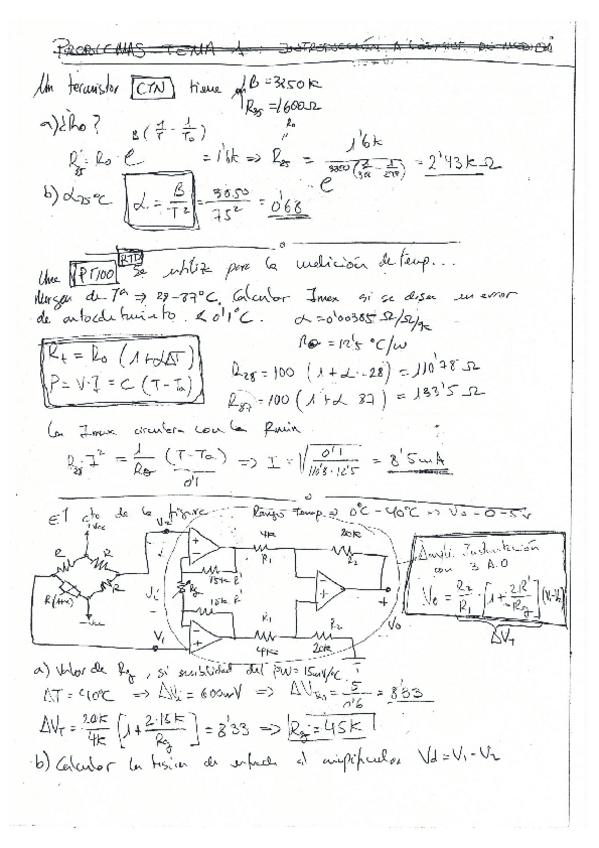 PROBLEMAS TEMA 1: INTRODUCCIÓN A
Un termistor CTN tiene B = 3250 K
R35 = 1600 Ω
a) ¿Ro?
B(1/T - 1/To)
= 1'6k ⇒ R25 = 1'6k = 2'43 kΩ
e
b) α75°C
α = B/T² = 3050/75² = 0'68
Una PT100 RTD se utiliza para la medición de temp...
Margen de Tª ⇒ 28-87°C. Calcular Imax si se desea un error
de autocalentamiento < 0'1°C. α = 0'00385 Ω/Ω/°K
= 12'5 °C/W
Rt = Ro (1 + αΔT)
P = V·I = C (T - Ta)
R28 = 100 (1 + α·28) = 110'78 Ω
R87 = 100 (1 + α 87) = 133'5 Ω
La Imax circulara con la Rmin
R28 I² = (T - Ta) ⇒ I = √ 0'1 / 110'8·12'5 = 8'5 mA
0'1
El cto de la figura Rango temp ⇒ 0°C-40°C ⇒ Vo = 0-5V
V2 4k 20k
R R R1 R2
15k R'
Rg
R(t) Vi
15k R'
V1 R1 R2 Vo
4k 20k
Ampli. Instrumentación
con 3 A.O
Vo = R2/R1 · [1 + 2R'/Rg]
ΔVT
a) Valor de Rg, si sensibilidad del pW = 15mV/°C
ΔT = 40°C ⇒ ΔVi = 600mV ⇒ = 5/0'6 = 8'33
ΔVT = 20k/4k [1 + 2·15k/Rg] = 8'33 ⇒ Rg = 45k
b) Calcular la tensión de entrada al amplificador Vd = V1 - V2